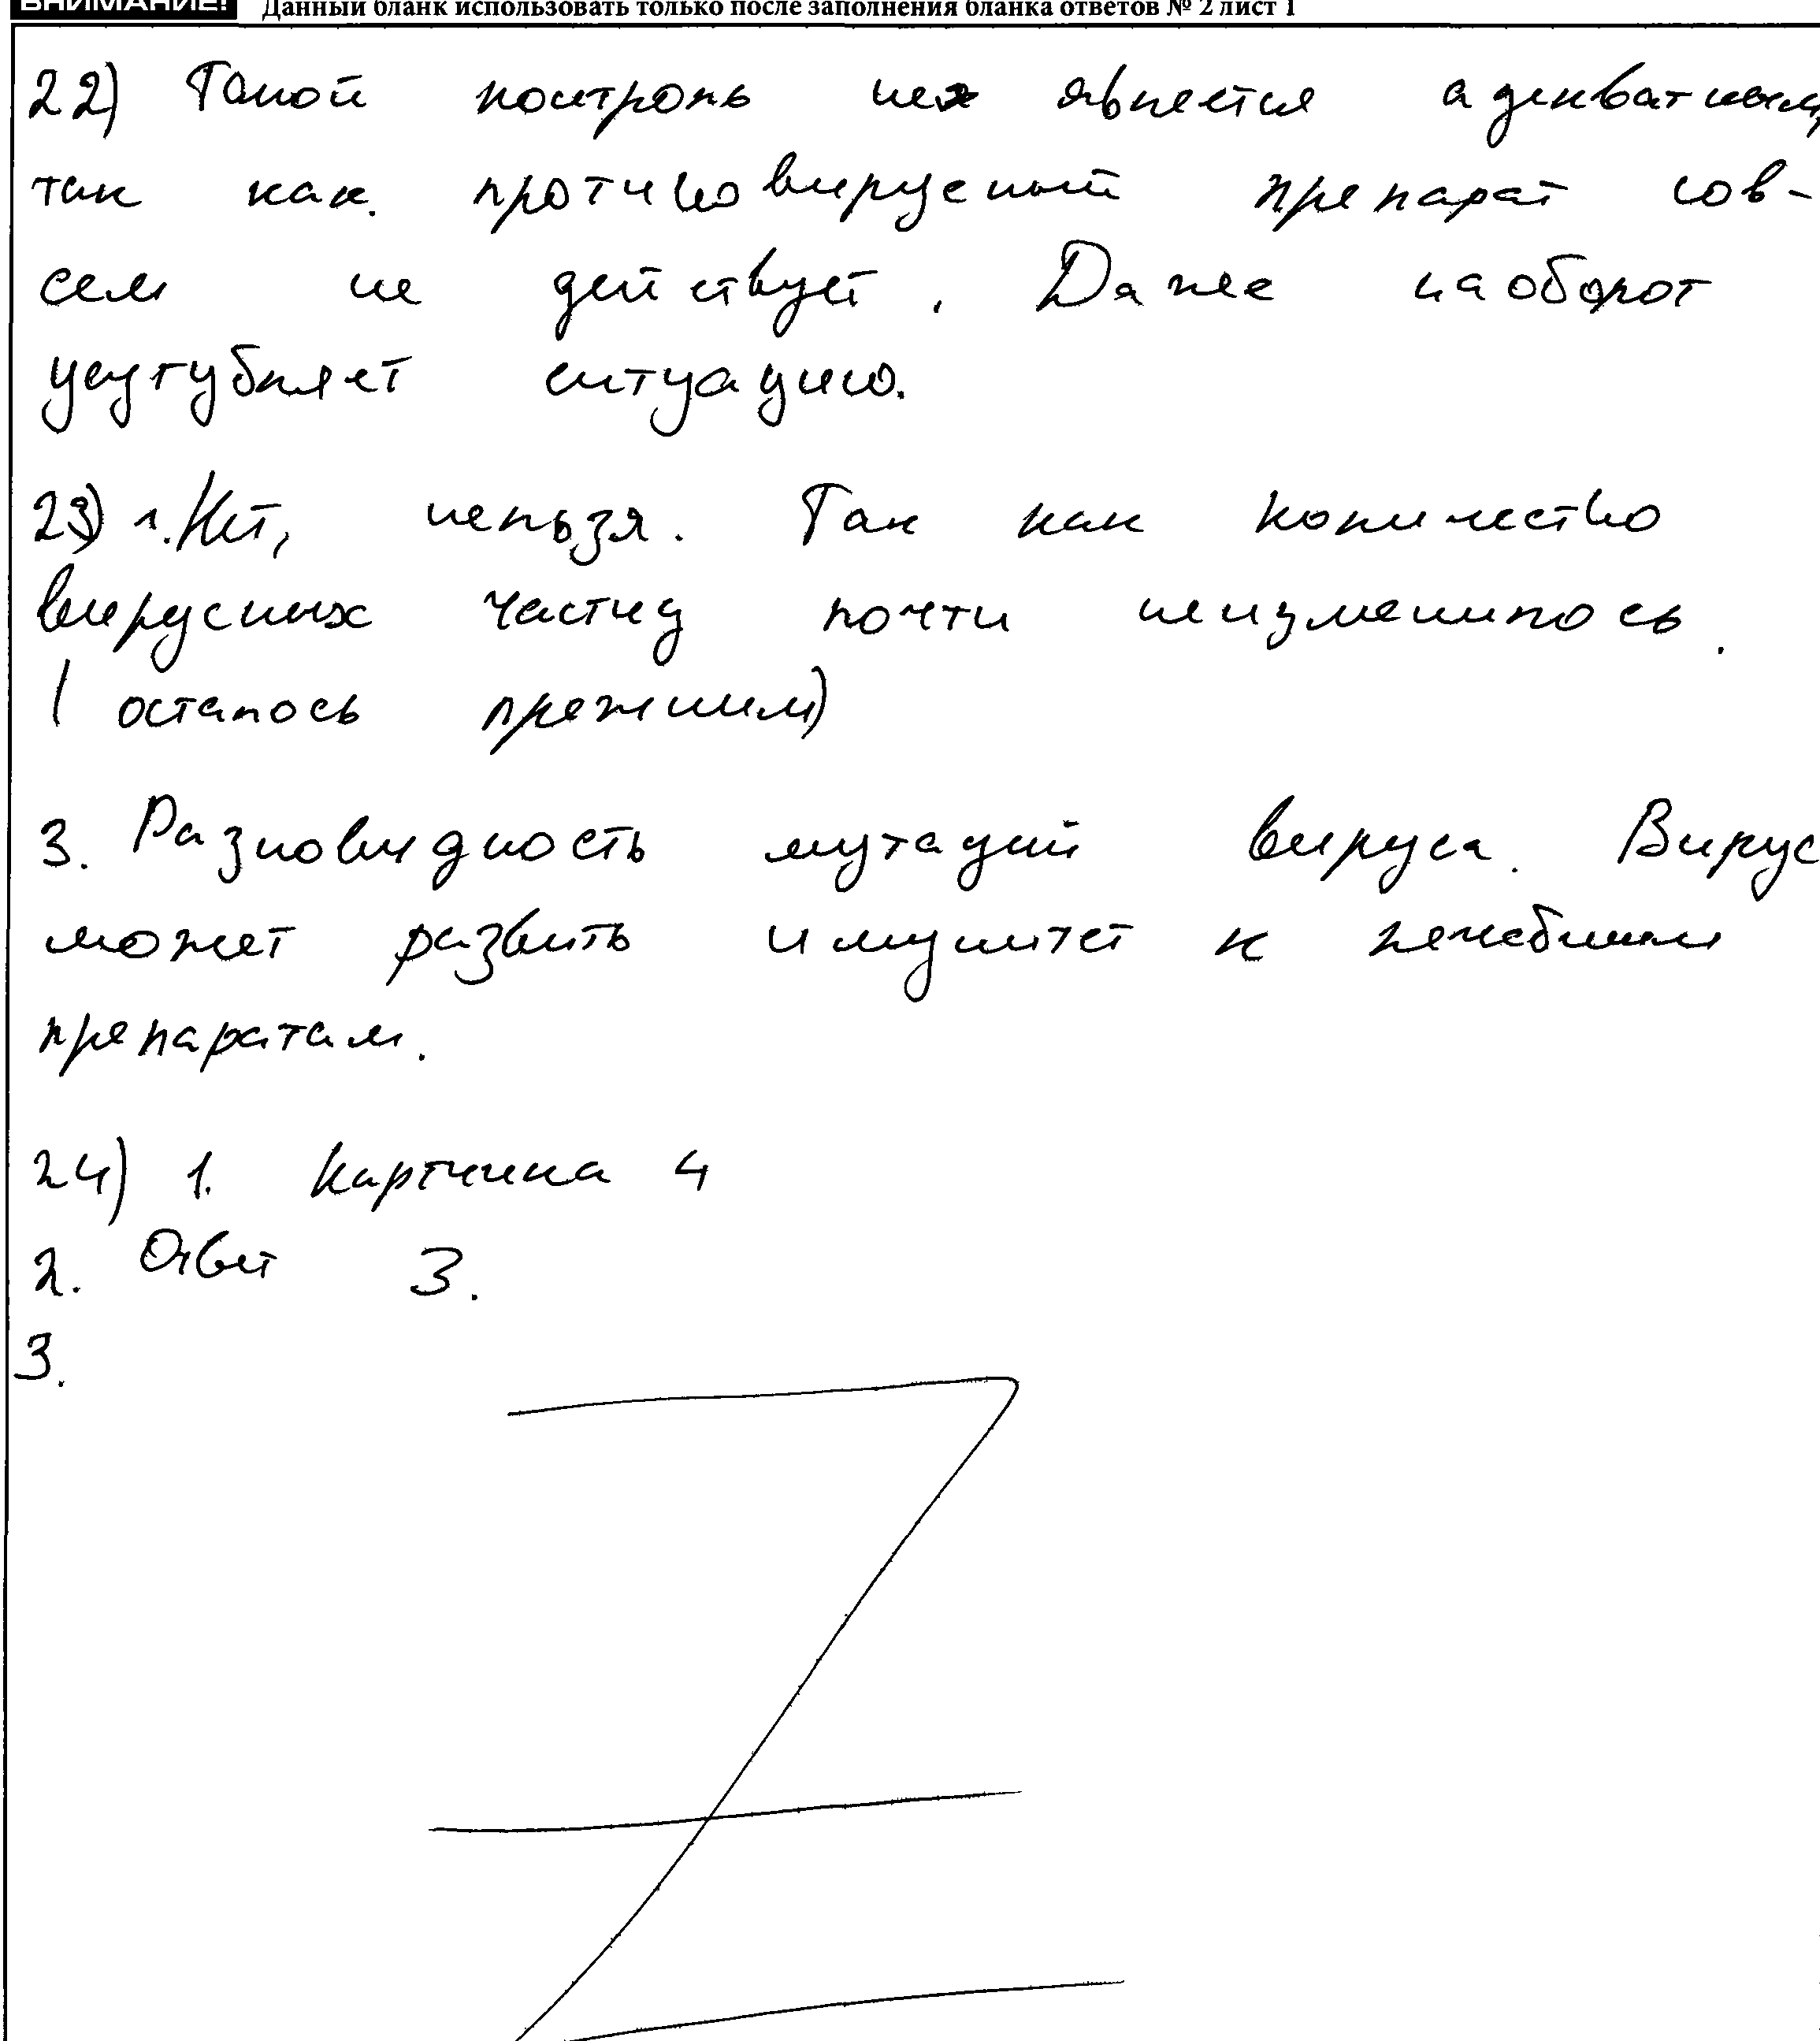 ВНИМАНИЕ! Данный бланк использовать только после заполнения бланка ответов № 2 лист 1
22) Такой контроль не является адекватным,
так как. противовирусный препарат сов-
сем не действует. Даже наоборот
усугубляет ситуацию.
23) 1. Нет, нельзя. Так как количество
вирусных частиц почти неизменилось.
(осталось прежним)
3. Разновидность мутаций вируса. Вирус
может развить имунитет к лечебным
препаратам.
24) 1. Картинка 4
2. Ответ 3.
3.